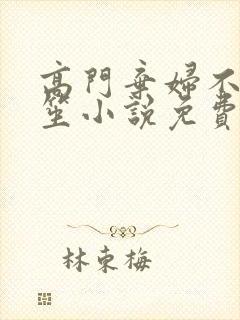 高門棄婦不
笙小說免費
林東梅